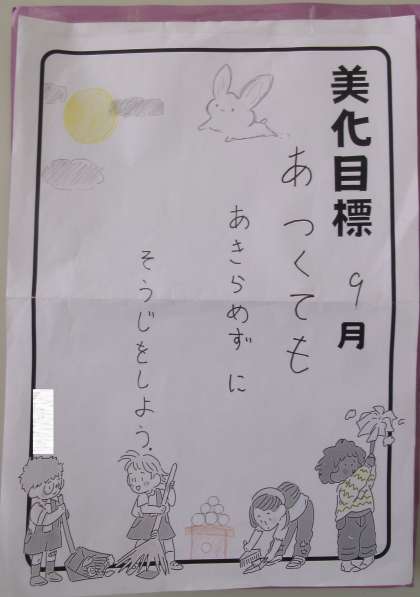 美化目標 9月
あつくても
あきらめずに
そうじをしよう。